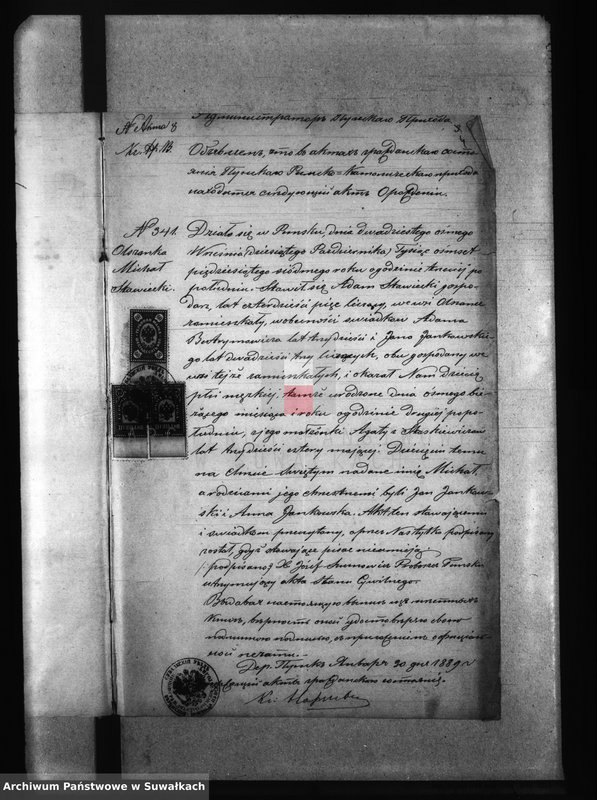 Администраторъ Пунскаго Прихода
№ Акта 8
Объявляетъ, что въ актахъ гражданскаго состо-
янія Пунскаго Римско-Католическаго прихода
находится следующій актъ О рожденіи.
№ 341.
Olszanka
Michał
Stawiecki.
Działo się w Puńsku, dnia dwudziestego ósmego
Września /dziesiątego Października/ Tysiąc ośmset
pięćdziesiątego siódmego roku o godzinie trzeciej po
południu. Stawił się Adam Stawiecki gospo-
darz, lat czterdzieści pięć liczący, we wsi Olszance
zamieszkały, w obecności świadków Adama
lat trzydzieści i Jana Jankowskie-
go lat dwadzieścia trzy liczących, obu gospodarzy we
wsi tejże zamieszkałych, i okazał Nam Dziecię
płci męzkiej, tamże urodzone dnia ósmego bie-
żącego miesiąca i roku o godzinie drugiej popo-
łudniu, z jego małżonki Agaty z Staskiewiczów
lat trzydzieści cztery mającej. Dziecięciu temu
na Chrzcie Świętym nadane imię Michał,
a rodzicami jego chrzestnemi byli Jan Jankow-
ski i Anna Jankowska. Akt ten stawającemu
i świadkom przeczytany, przez Nas tylko podpisany
został, gdyż stawające pisać nieumieją
/podpisano/ X. Józef
utrzymujący akta Stanu Cywilnego.
Выдавая настоящую
вѣрность оной удостовѣряю свое-
подписью, съ приложеніемъ
печати.
Дер. Пунскъ Января 30 дня 1889 г.
акты гражданскаго состоянія.
Archiwum Państwowe w Suwałkach